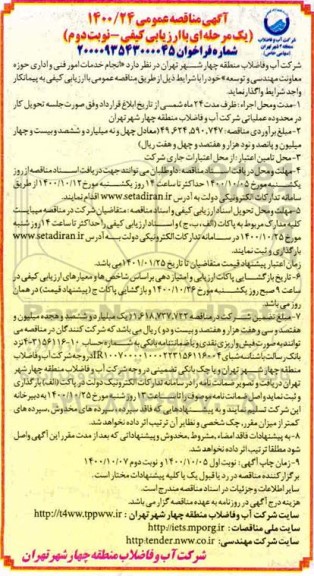 آگهی مناقصه عمومی ۱۴۰۰/۲۴
(یک مرحله ای با ارزیابی کیفی - نوبت دوم)
شماره فراخوان ۲۰۰۰۰۹۳۵۴۳۰۰۰۰۴۵
شرکت آب و فاضلاب
منطقه ۴ شهر تهران
(سهامی خاص)
شرکت آب و فاضلاب منطقه چهار شهر تهران در نظر دارد «انجام خدمات امور فنی و اداری حوزه
معاونت مهندسی و توسعه» خود را با شرایط ذیل از طریق مناقصه عمومی با ارزیابی کیفی به پیمانکار
واجد شرایط واگذار نماید.
۱- مدت و محل اجراء: ظرف مدت ۲۴ ماه شمسی از تاریخ ابلاغ قرارداد وفق صورت جلسه تحویل کار
در محدوده عملیاتی شرکت آب و فاضلاب منطقه چهار شهر تهران
۲- مبلغ برآوردی مناقصه: ۴۹,۶۲۴,۵۹۰,۷۴۷ (معادل چهل و نه میلیارد و ششصد و بیست و چهار
میلیون و پانصد و نود هزار و هفتصد و چهل و هفت ریال)
۳- محل تامین اعتبار: از محل اعتبارات جاری شرکت
۴- مهلت و محل دریافت اسناد مناقصه: داوطلبان می توانند جهت دریافت اسناد مناقصه از روز
یکشنبه مورخ ۱۴۰۰/۱۰/۰۵ حداکثر تا ساعت ۱۴ روز یکشنبه مورخ ۱۴۰۰/۱۰/۱۲ از طریق
سامانه تدارکات الکترونیکی دولت به آدرس www.setadiran.ir اقدام نمایند.
۵- مهلت و محل تحویل اسناد ارزیابی کیفی و اسناد مناقصه: متقاضیان شرکت در مناقصه میبایست
کلیه مدارک مربوط به پاکات (الف، ب، ج) و اسناد ارزیابی کیفی را حداکثر تا ساعت ۱۴ روز شنبه
مورخ ۱۴۰۰/۱۰/۲۵ در سامانه تدارکات الکترونیکی دولت به آدرس www.setadiran.ir
بارگذاری و ثبت نمایند.
زمان اعتبار پیشنهاد قیمت متقاضیان تا تاریخ ۱۴۰۱/۰۱/۲۵ می باشد.
۶- تاریخ بازگشایی پاکات ارزیابی و امتیاز دهی براساس شاخص ها و معیارهای ارزیابی کیفی در
ساعت ۹ صبح روز یکشنبه مورخ ۱۴۰۰/۱۰/۲۶ و بازگشایی پاکات ج (پیشنهاد قیمت) در همان
روز می باشد.
۷- مبلغ تضمین شرکت در مناقصه ۱,۶۱۸,۷۳۷,۷۲۲ (یک میلیارد و ششصد و هجده میلیون و
هفتصد و سی و هفت هزار و هفتصد و بیست و دو) ریال می باشد که شرکت کنندگان در مناقصه می
توانند به صورت فیش واریزی نقدی و یا ضمانتنامه بانکی
منطقه چهار شهر تهران و یا چک بانکی تضمینی در وجه شرکت آب و فاضلاب منطقه چهار شهر
تهران دریافت و تصویر ضمانت نامه را در سامانه تدارکات الکترونیک دولت در پاکت (الف) بارگذاری
و ثبت نماید و اصل ضمانت نامه موصوف را تا ساعت ۱۴ روز شنبه مورخ ۱۴۰۰/۱۰/۲۵ به دبیرخانه
این شرکت تسلیم نمایند و به پیشنهادهایی که فاقد سپرده، سپرده های مخدوش، سپرده های
کمتر از میزان مقرر، چک شخصی و نظایر آن ترتیب اثر داده نخواهد شد.
۸- به پیشنهادات فاقد امضاء، مشروط، مخدوش و پیشنهاداتی که بعد از مدت مقرر این آگهی واصل
شود مطلقا ترتیب اثر داده نخواهد شد.
۹- زمان چاپ آگهی: نوبت اول ۱۴۰۰/۱۰/۰۵ و نوبت دوم ۱۴۰۰/۱۰/۰۷
برگزار کننده مناقصه در رد یا قبول یک یا کلیه پیشنهادات مختار است.
سایر اطلاعات و جزئیات در اسناد مناقصه مندرج است.
هزینه درج آگهی در روزنامه به عهده مناقصه گزار می باشد.
سایت شرکت آب و فاضلاب منطقه چهار شهر تهران : http://t4ww.tppww.ir
سایت ملی مناقصات: http://iets.mporg.ir
سایت شرکت مهندسی: http:tender.nww.co.ir
شرکت آب و فاضلاب منطقه چهار شهر تهران